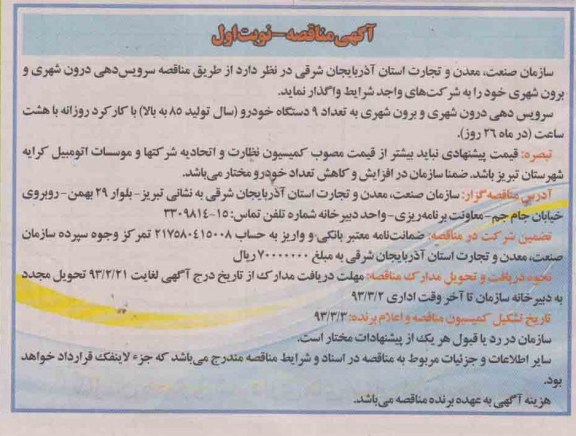 آگهی مناقصه - نوبت اول
سازمان صنعت، معدن و تجارت استان آذربایجان شرقی در نظر دارد از طریق مناقصه سرویس‌دهی درون شهری و
برون شهری خود را به شرکت‌های واجد شرایط واگذار نماید.
سرویس دهی درون شهری و برون شهری به تعداد ۹ دستگاه خودرو (سال تولید ۸۵ به بالا) با کارکرد روزانه با هشت
ساعت (در ماه ۲۶ روز).
تبصره: قیمت پیشنهادی نباید بیشتر از قیمت مصوب کمیسیون نظارت و اتحادیه شرکتها و موسسات اتومبیل کرایه
شهرستان تبریز باشد. ضمنا سازمان در افزایش و کاهش تعداد خودرو مختار می‌باشد.
آدرس مناقصه‌گزار: سازمان صنعت، معدن و تجارت استان آذربایجان شرقی به نشانی تبریز- بلوار ۲۹ بهمن- روبروی
خیابان جام جم- معاونت برنامه‌ریزی- واحد دبیرخانه شماره تلفن تماس: ۱۵-۳۳۰۹۸۱۴
تضمین شرکت در مناقصه: ضمانت‌نامه معتبر بانکی و واریز به حساب ۲۱۷۵۸۰۴۱۵۰۰۸ تمرکز وجوه سپرده سازمان
صنعت، معدن و تجارت استان آذربایجان شرقی به مبلغ ۷۰۰۰۰۰۰۰ ریال
نحوه دریافت و تحویل مدارک مناقصه: مهلت دریافت مدارک از تاریخ درج آگهی لغایت ۹۳/۲/۲۱ تحویل مجدد
به دبیرخانه سازمان تا آخر وقت اداری ۹۳/۳/۲
تاریخ تشکیل کمیسیون مناقصه و اعلام برنده: ۹۳/۳/۳
سازمان در رد یا قبول هر یک از پیشنهادات مختار است.
سایر اطلاعات و جزئیات مربوط به مناقصه در اسناد و شرایط مناقصه مندرج می‌باشد که جزء لاینفک قرارداد خواهد
بود.
هزینه آگهی به عهده برنده مناقصه می‌باشد.